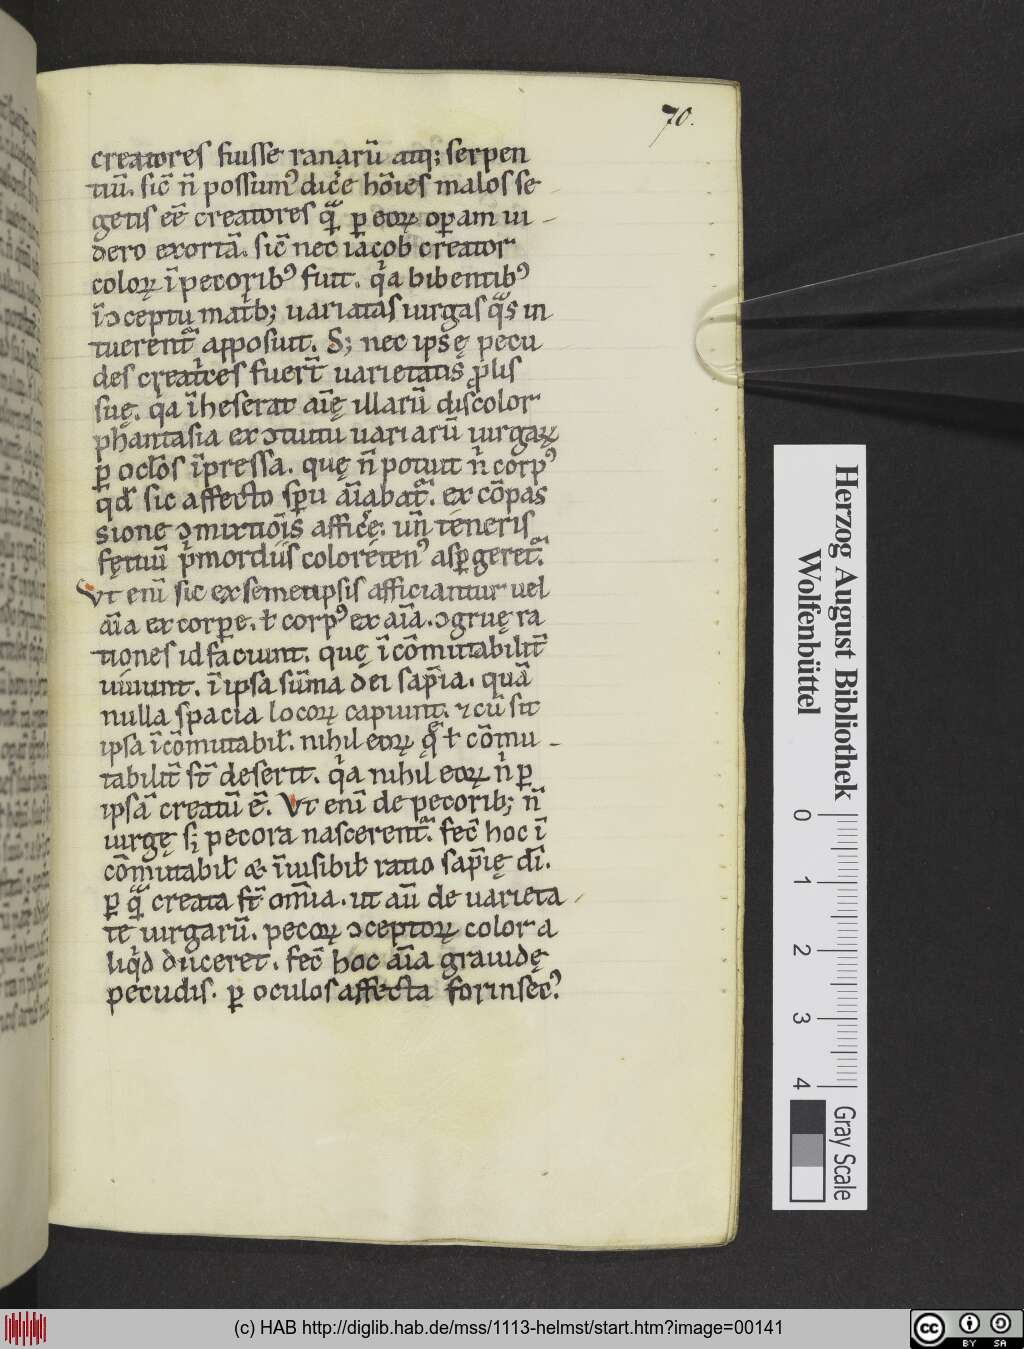 70.
creatores fuisse ranarū atq; serpen
tiū. sic̄ n̄ possum᷒ dic̓e hōies malos se
getis eē creatores q̄ꝫ ꝑ eoꝝ oꝑam ui
dero exortā. sic̄ nec iacob creator
coloꝝ ī pecorib᷒ fuit. qͥa bibentib᷒
ī ↄceptu matͥb; uariatas uirgas qͣs in
tuerentᷓ apposuit. S; nec ipsę pecu
des creatͥces fuer̄t uarietatis ꝓlis
suę. qͥa īheserat aīę illarū discolor
phantasia ex ↄtuitu uariarū uirgaꝝ
ꝑ oclōs īpressa. quę n̄ potuit nͥ corp᷒
qđ sic affecto spū aīabatᷓ. ex cōpas
sione ↄmixtiōis affic̓e. uñ teneris
fętuū pͥmordiis coloreten᷒ asꝑgeretᷓ.
Vt enī sic ex semetipsis afficiantur uel
aīa ex corꝑe. ł corp᷒ ex aīa. ↄgruę ra
tiones id faciunt. quę īcōmutabilit̄
uiuunt. ī ipsa sūma dei sap̄ia. quā
nulla spacia locoꝝ capiunt. ⁊ cū sit
ipsa īcōmutabił. nihil eoꝝ q̄ ł cōmu
tabilit̄ st̄ deserit. qͥa nihil eoꝝ nͥ ꝑ
ipsā creatū ē. Vt enī de pecorib; n̄
uirgę s; pecora nascerentᷓ. fec̄ hoc ī
cōmutabił & īuisibił ratio sap̄ię dī.
ꝑ qͣꝫ creata st̄ om̄ia. ut aū de uarieta
te uirgarū. pecoꝝ ↄceptoꝝ color a
liqͥd duceret. fec̄ hoc aīa grauidę
pecudis. ꝑ oculos affecta forinsec᷒
Herzog August Bibliothek
Wolfenbüttel
0 1 2 3 4
Gray Scale
(c) HAB http://diglib.hab.de/mss/1113-helmst/start.htm?image=00141
cc BY SA